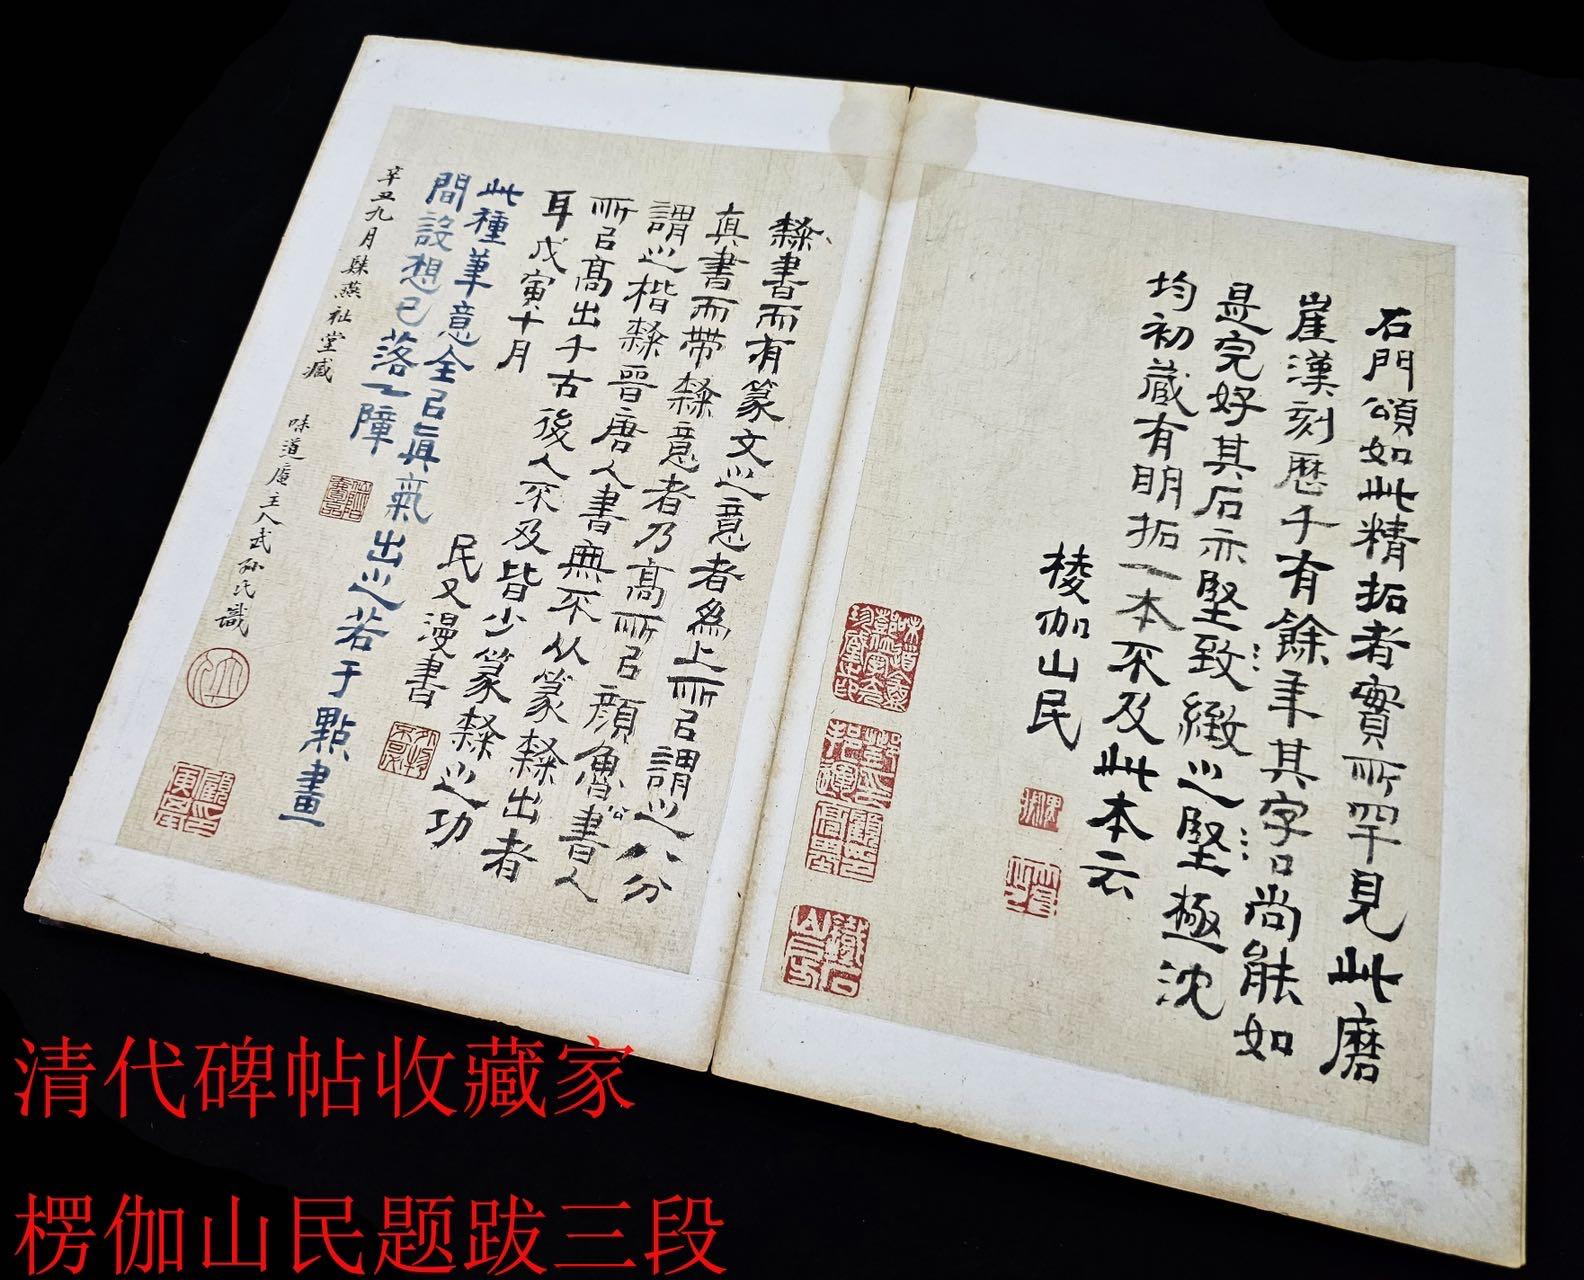 石門頌如此精拓者實所罕見此磨
崖漢刻歷千有餘年其字口尚能如
是完好其石亦堅致緻之堅極沈
均初藏有明拓一本不及此本云
棱伽山民
隸書而有篆文之意者為上所㠯謂之八分
真書而帶隸意者乃高所㠯顏魯公書人
謂之楷隸晉唐人書無不从篆隸出者
所㠯高出千古後人不及皆少篆隸之功
耳戊寅十月
民又漫書
此種筆意全㠯真氣出之若于點畫
間設想已落一障
辛丑九月歸燕祉堂臧
味道庵主人武孙氏識
鐵石山房
清代碑帖收藏家
楞伽山民题跋三段